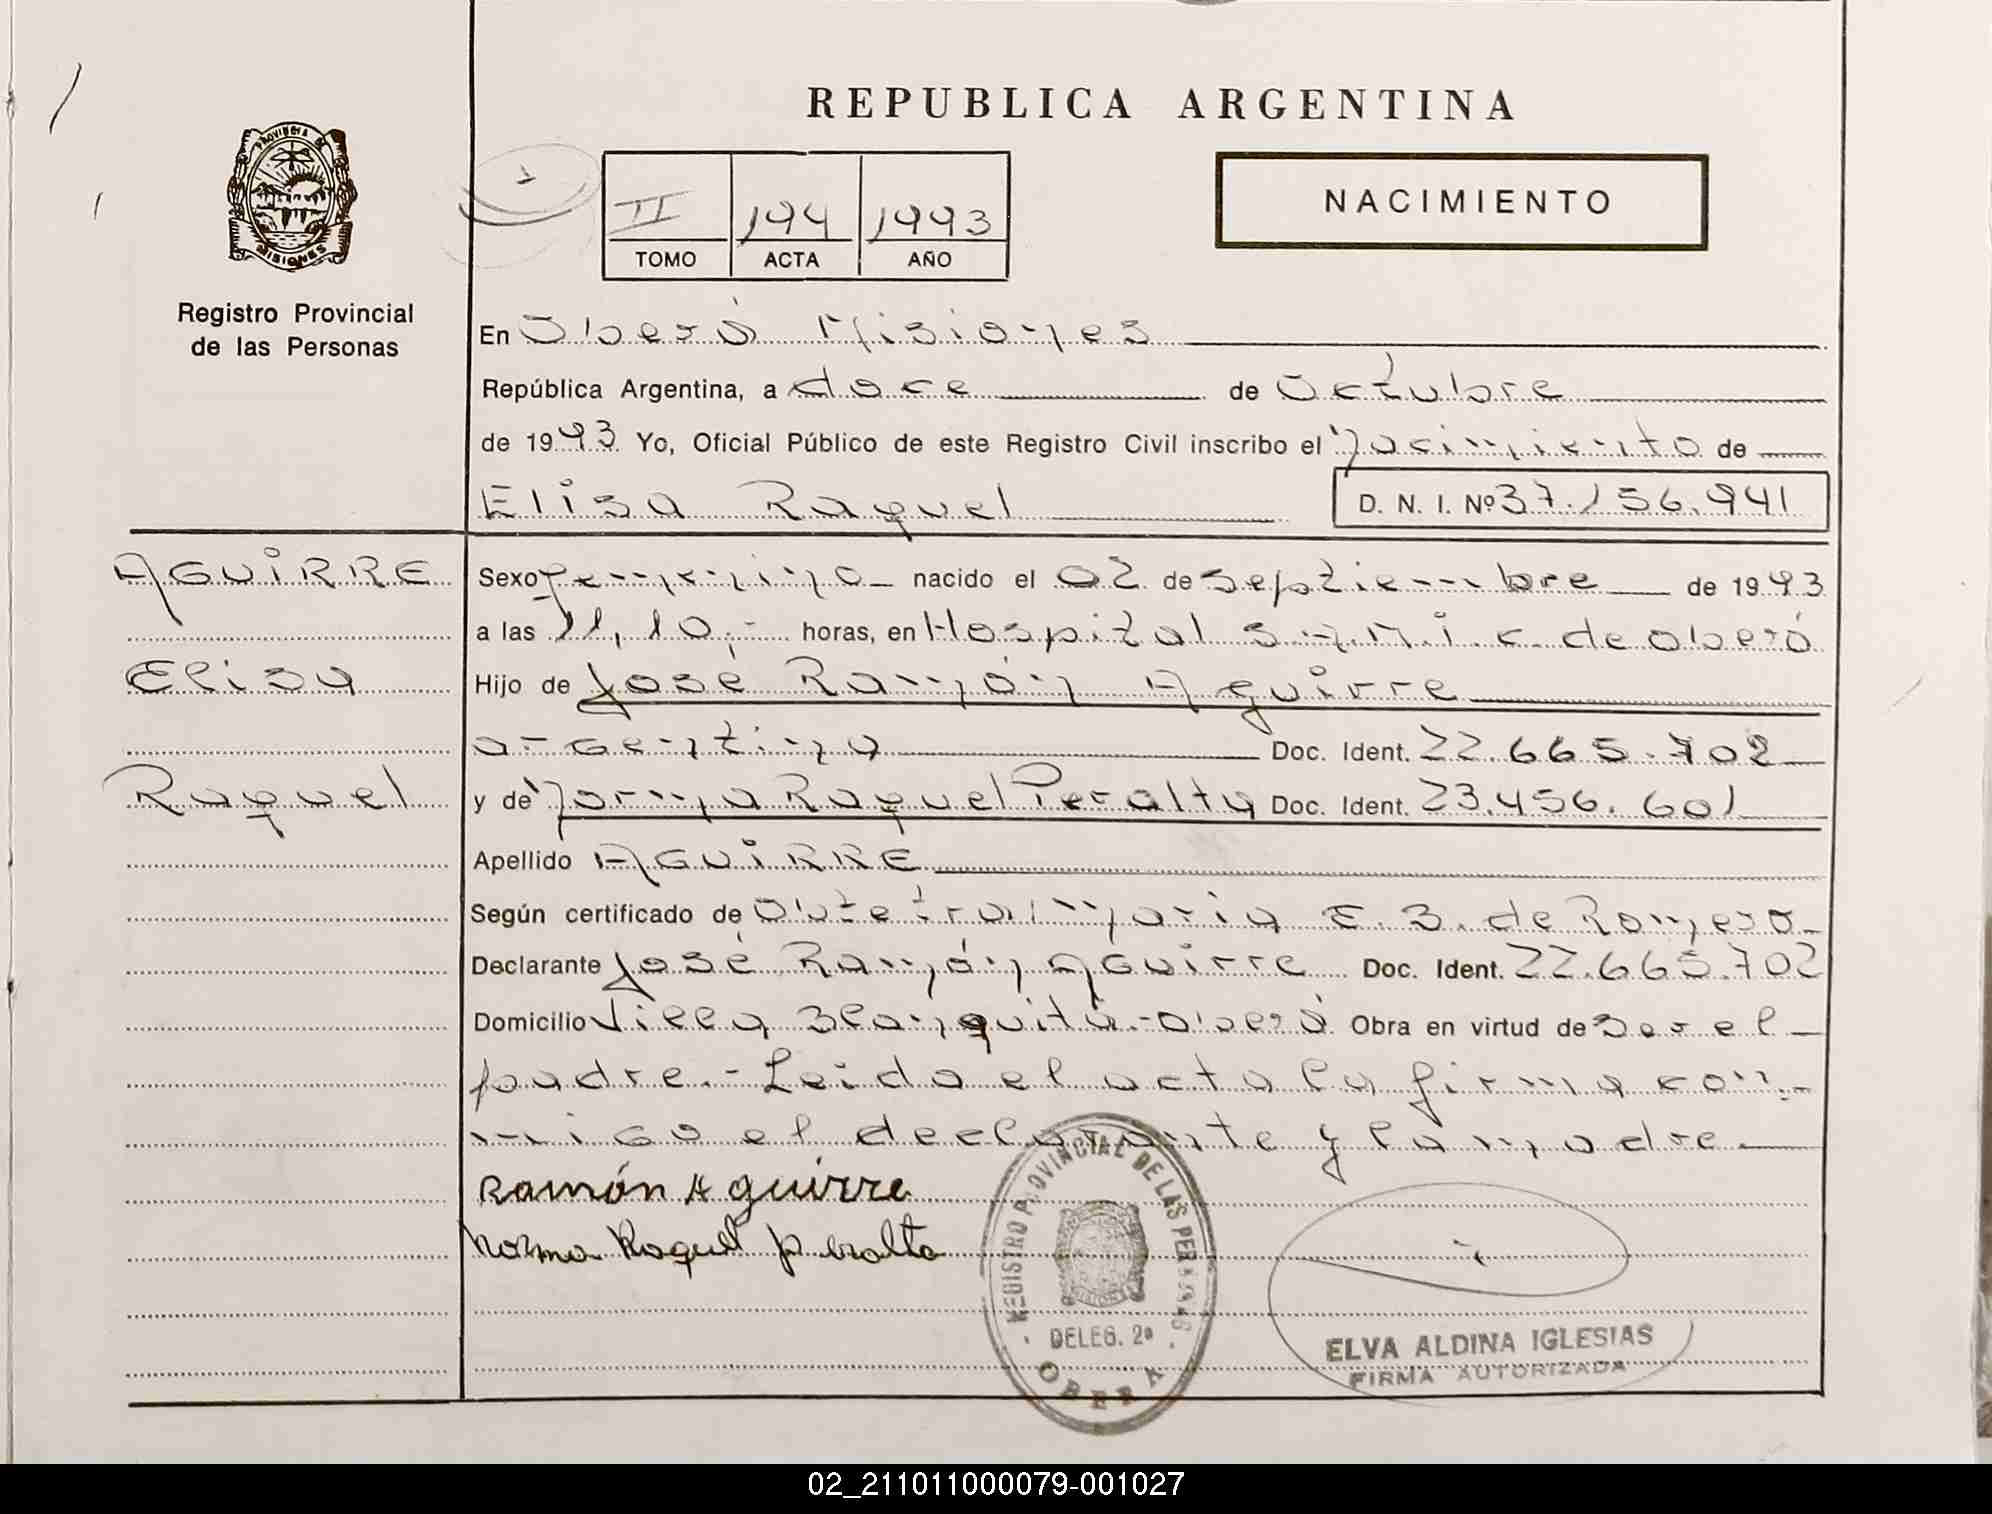 REPUBLICA ARGENTINA
PROVINCIA DE
MISIONES
Registro Provincial
de las Personas
II 194 1993
TOMO ACTA AÑO
NACIMIENTO
En Oberá Misiones
República Argentina, a doce de Octubre
de 1993 Yo, Oficial Público de este Registro Civil inscribo el Nacimiento de
Elisa Raquel D. N. I. Nº 37.156.941
AGUIRRE
Elisa
Raquel
Sexo Femenino nacido el 02 de Septiembre de 1993
a las 11,10.- horas, en Hospital S.A.M.I.C. de Oberá
Hijo de José Ramón Aguirre
argentina Doc. Ident. 22.665.702
y de Norma Raquel Peralta Doc. Ident. 23.456.601
Apellido AGUIRRE
Según certificado de Obstetra María E. B. de Romero
Declarante José Ramón Aguirre Doc. Ident. 22.665.702
Domicilio Villa Blanquita - Oberá Obra en virtud de ser el
padre.- Leida el acta la firma con-
migo el declarante y la madre
Ramón Aguirre
Norma Raquel Peralta
REGISTRO PROVINCIAL DE LAS PERSONAS
DELEG. 2ª
OBERA
ELVA ALDINA IGLESIAS
FIRMA AUTORIZADA
02_211011000079-001027